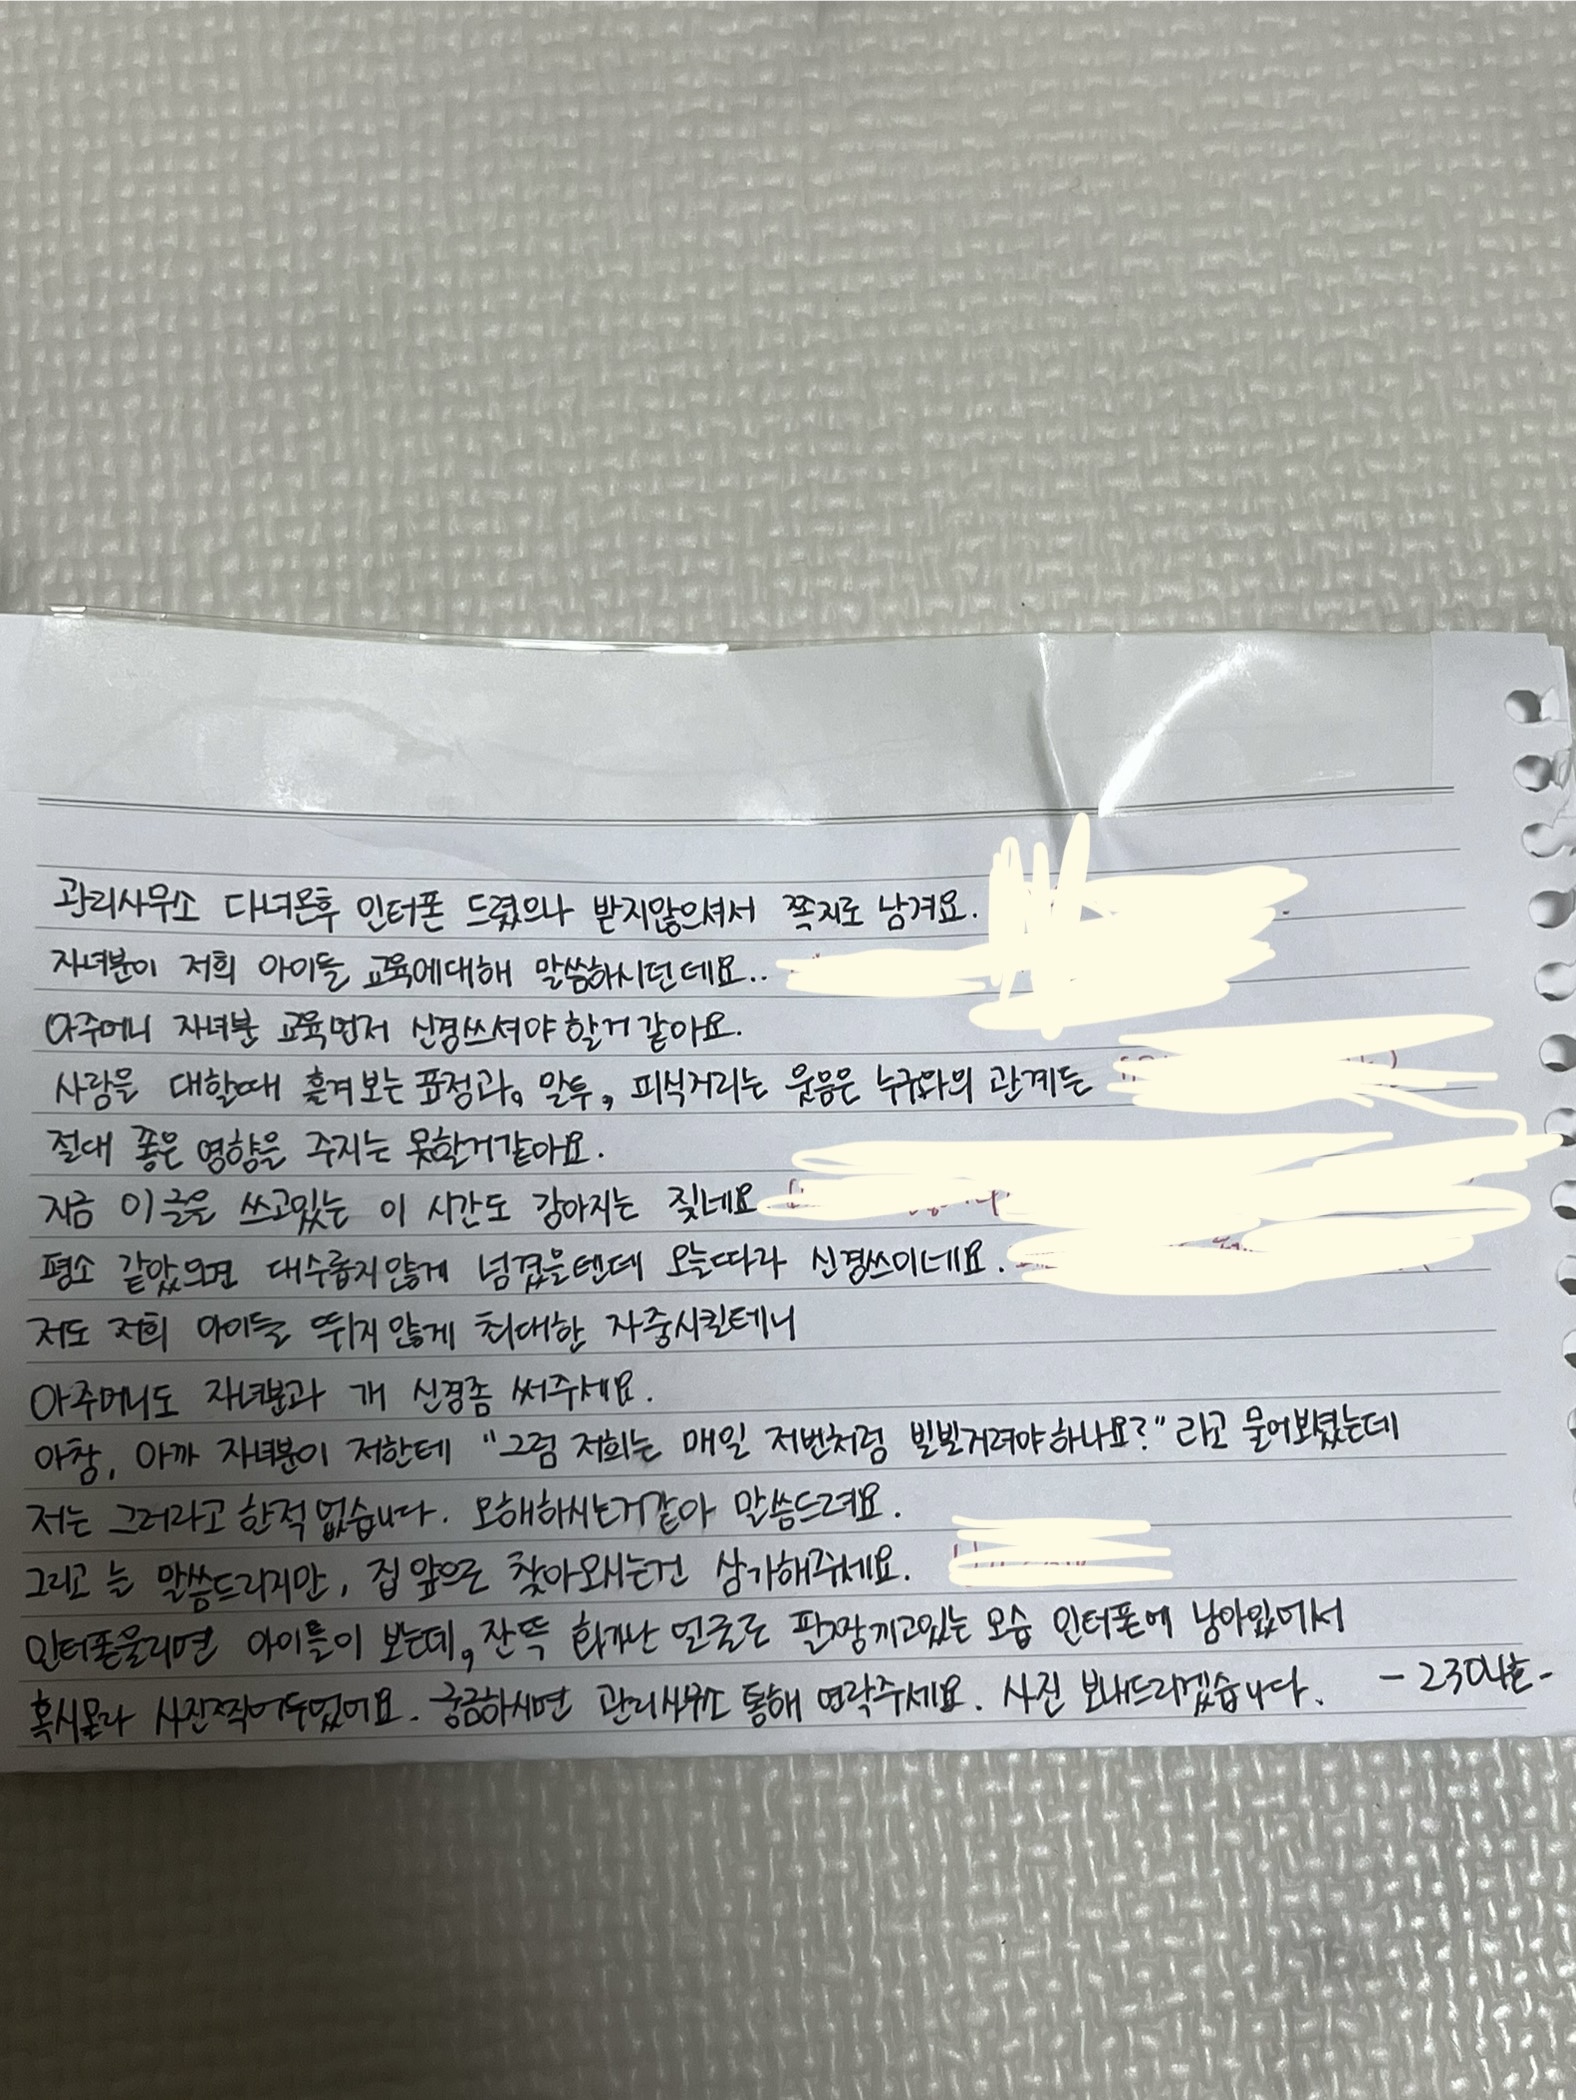 관리사무소 다녀온후 인터폰 드렸으나 받지않으셔서 쪽지로 남겨요.
자녀분이 저희 아이들 교육에대해 말씀하시던데요..
아주머니 자녀분 교육먼저 신경쓰셔야 할거 같아요.
사람을 대할때 흘겨 보는 표정과, 말투, 피식거리는 웃음은 누구와의 관계든
절대 좋은 영향을 주지는 못할거같아요.
지금 이 글을 쓰고있는 이 시간도 강아지는 짖네요
평소 같았으면 대수롭지않게 넘겼을텐데 오늘따라 신경쓰이네요.
저도 저희 아이들 뛰지않게 최대한 자중시킬테니
아주머니도 자녀분과 개 신경좀 써주세요.
아참, 아까 자녀분이 저한테 "그럼 저희는 매일 저번처럼 빌빌거려야하나요?" 라고 물어보셨는데
저는 그러라고 한적없습니다. 오해하시는거같아 말씀드려요.
그리고 늘 말씀드리지만, 집 앞으로 찾아오시는건 삼가해주세요.
인터폰울리면 아이들이 보는데, 잔뜩 화가난 얼굴로 팔짱끼고있는 모습 인터폰에 남아있어서
혹시몰라 사진찍어두었어요. 궁금하시면 관리사무소 통해 연락주세요. 사진 보내드리겠습니다. - 2304호-